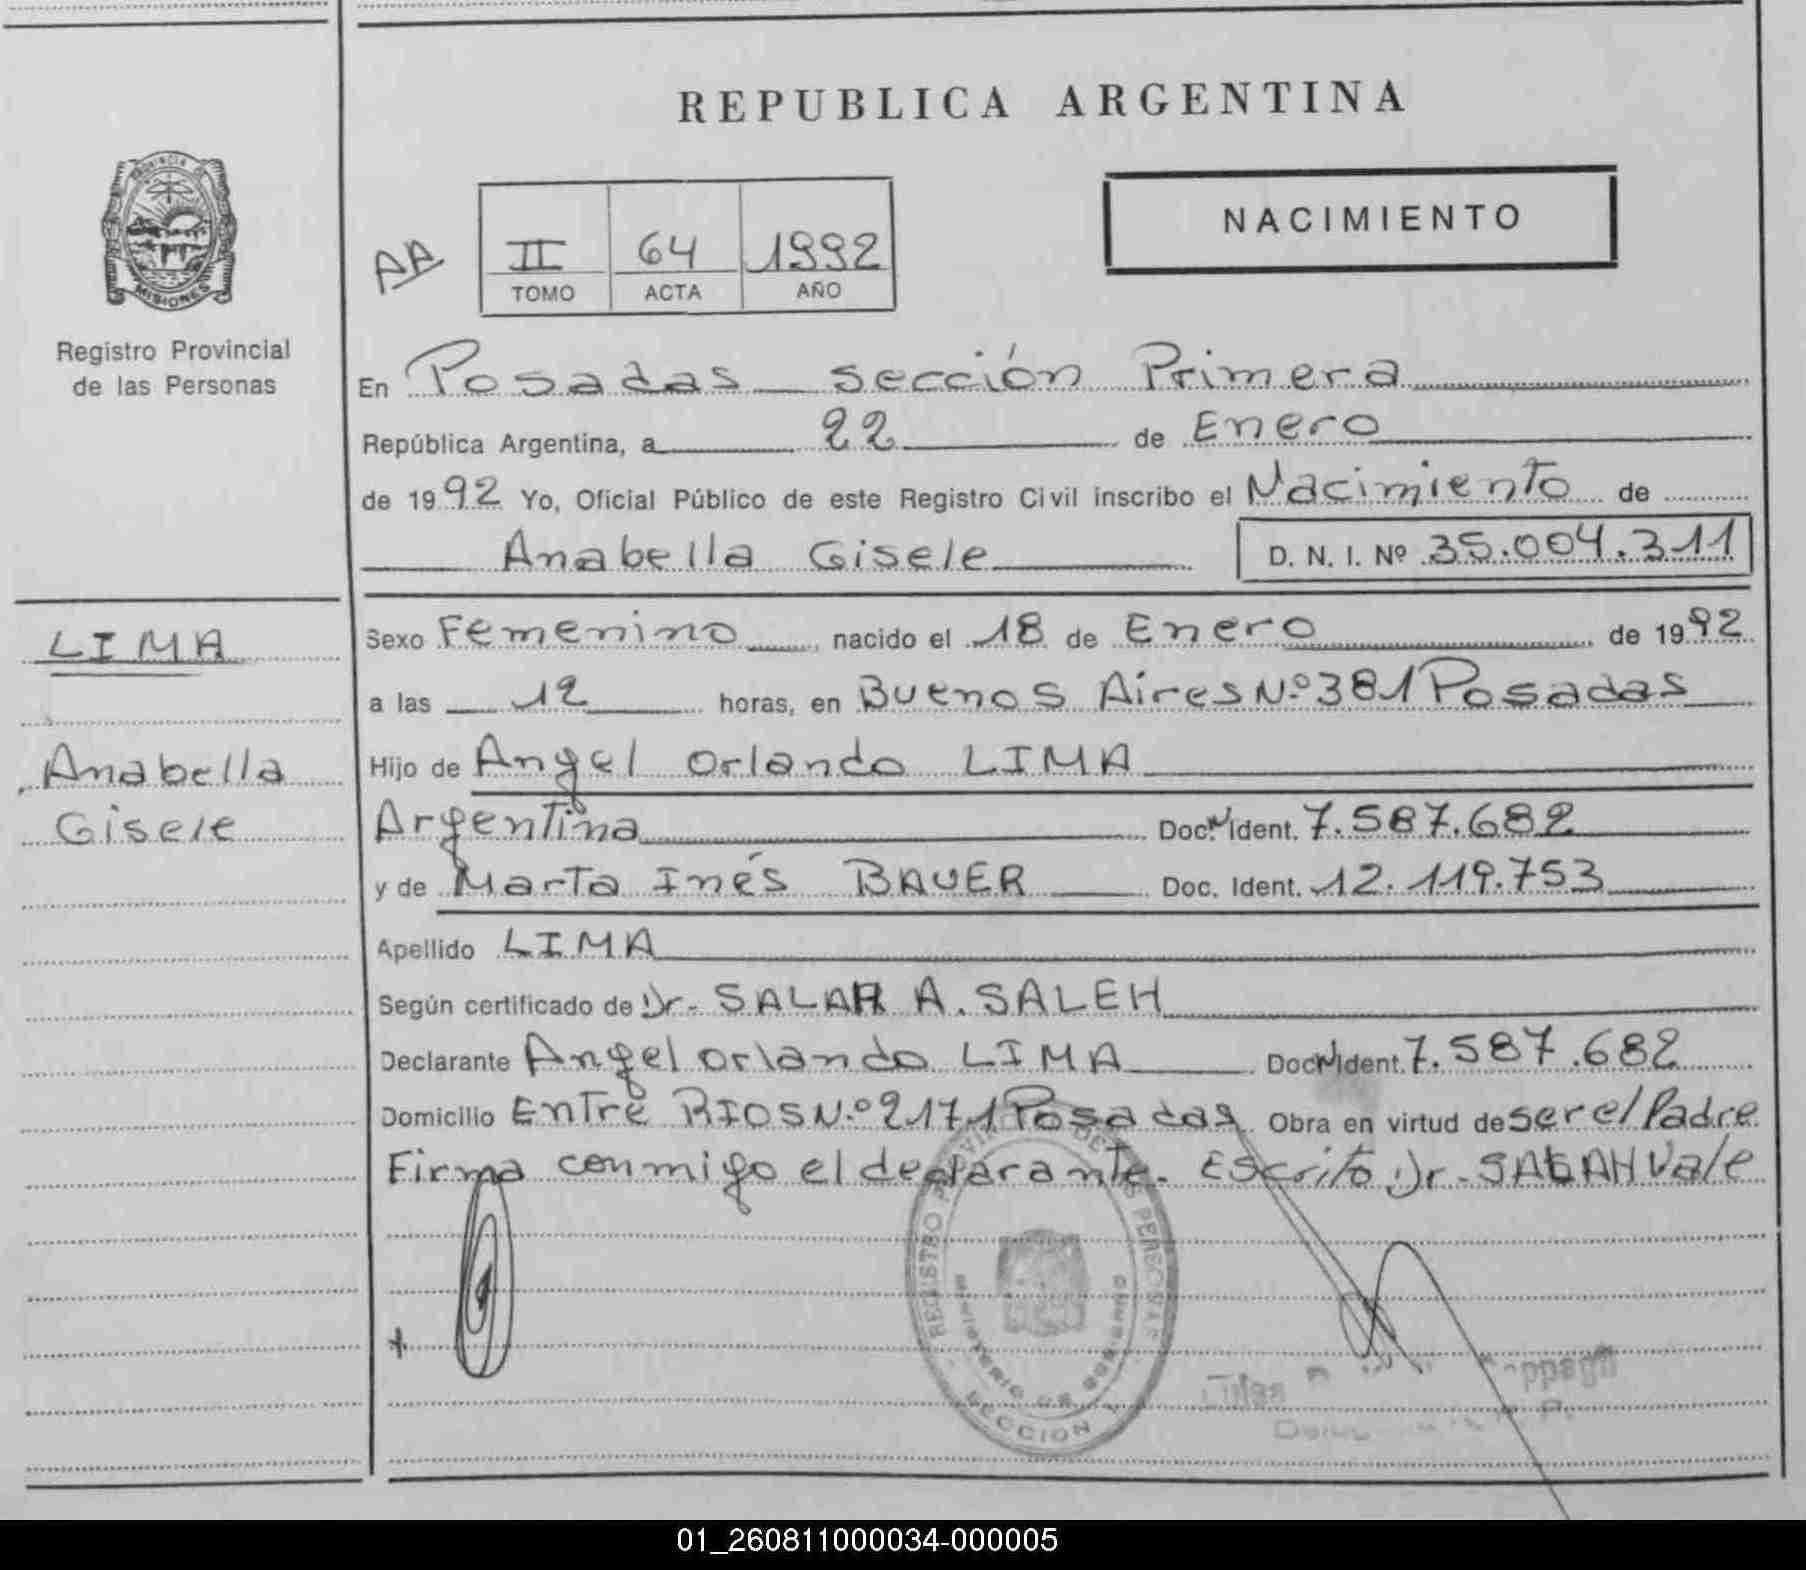 REPUBLICA ARGENTINA
PROVINCIA
MISIONES
Registro Provincial
de las Personas
AA
II 64 1992
TOMO ACTA AÑO
NACIMIENTO
En Posadas sección Primera
República Argentina, a 22 de Enero
de 1992 Yo, Oficial Público de este Registro Civil inscribo el Nacimiento de
Anabella Gisele D. N. I. Nº 35.004.311
LIMA
Anabella
Gisele
Sexo Femenino nacido el 18 de Enero de 1992
a las 12 horas, en Buenos Aires N.º 381 Posadas
Hijo de Angel Orlando LIMA
Argentina Doc. N Ident. 7.587.682
y de Marta Inés BAUER Doc. Ident. 12.119.753
Apellido LIMA
Según certificado de Dr. SALAH A. SALEH
Declarante Angel Orlando LIMA Doc N Ident. 7.587.682
Domicilio Entre RIOS N.º 2171 Posadas Obra en virtud de ser el Padre
Firma conmigo el declarante. Escrito Dr. SALAH Vale
REGISTRO PROVINCIAL DE LAS PERSONAS
MINISTERIO DE GOBIERNO
SECCION
01_260811000034-000005